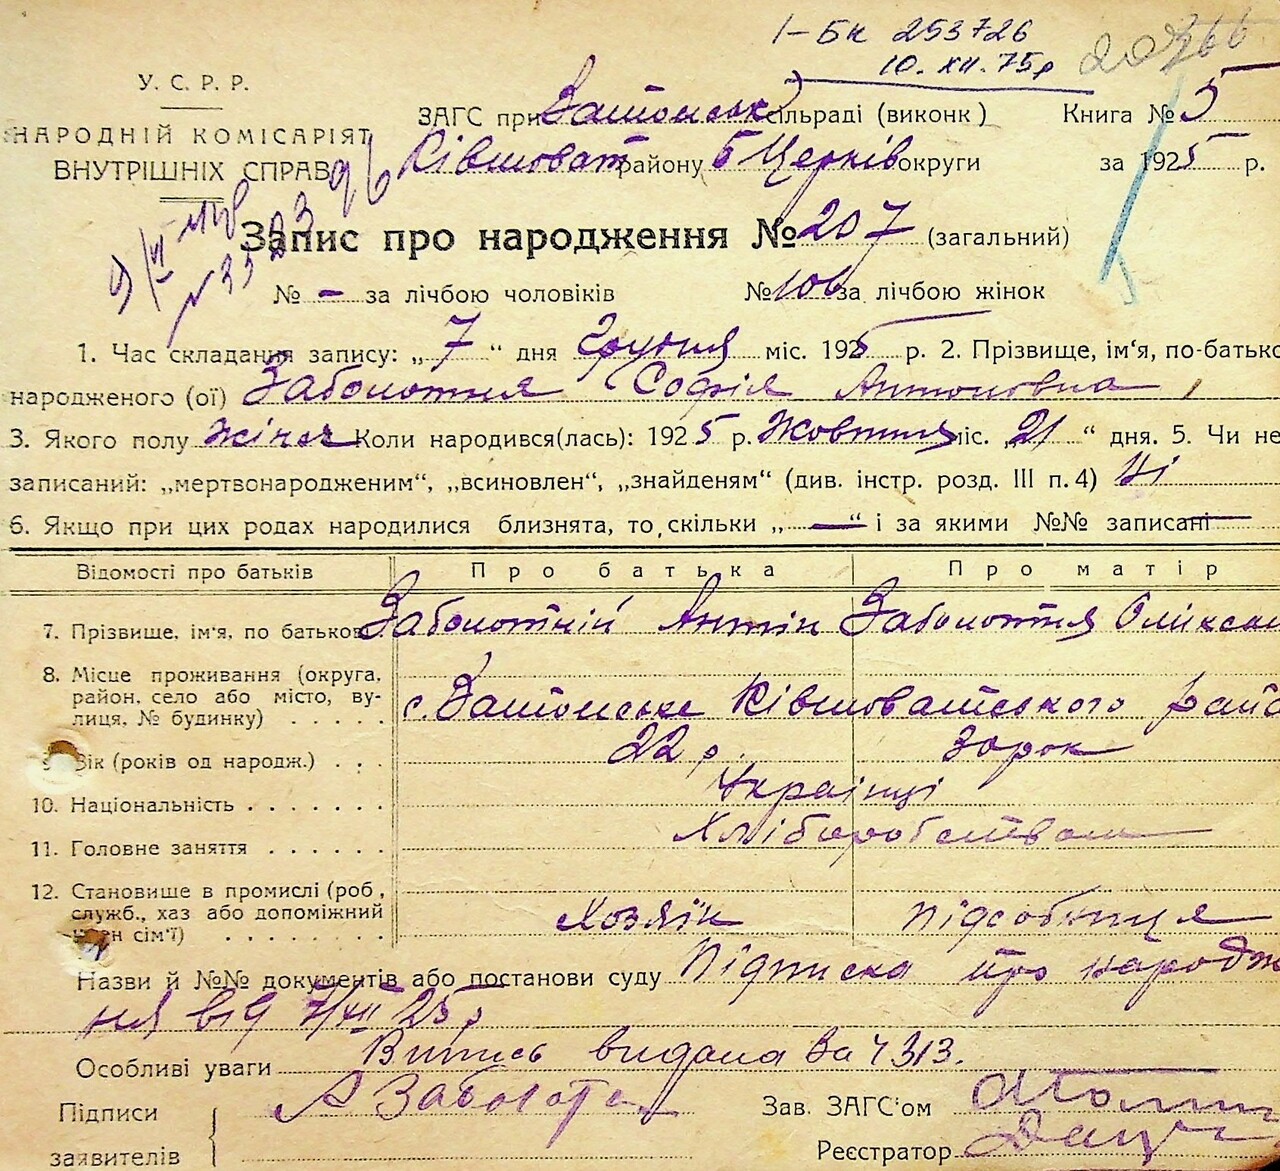 І-БК 253726
10.XII.75р
У. С. Р. Р.
НАРОДНІЙ КОМІСАРІЯТ
ВНУТРІШНІХ СПРАВ
ЗАГС при Затонськ сільраді (виконк)
Книга № 5
Ківшоват району Б Церків округи
за 1925 р.
Запис про народження № 207 (загальний)
№ – за лічбою чоловіків № 106 за лічбою жінок
1. Час складання запису: „ 7 “ дня Грудня міс. 1925 р. 2. Прізвище, ім‘я, по-батьков
народженого (ої) Заболотня Софія Антоновна,
3. Якого полу жіноч Коли народився(лась): 1925 р. Жовтня міс. „ 21 “ дня. 5. Чи не
записаний: „мертвонародженим“, „всиновлен“, „знайденям“ (див. інстр. розд. III п.4) Ні
6. Якщо при цих родах народилися близнята, то скільки „ — “ і за якими №№ записані —
Відомості про батьків Про батька Про матір
7. Прізвище, ім‘я, по батьков Заболотній Антін Заболотня Олександ
8. Місце проживання (округа,
район, село або місто, ву-
лиця, № будинку) с. Затонське Ківшоватського райо
9. Вік (років од народж.) 22 р.
10. Національність Українці
11. Головне заняття Хліборобством
12. Становище в промислі (роб,
служб., хаз або допоміжний
член сім‘ї) Хозяїн підсобниця
Назви й №№ документів або постанови суду Підписка про народж
ня від 7/XII 25 р
Особливі уваги Витись видана за 4313.
Підписи
заявителів
А Заболот
Зав. ЗАГС‘ом
Реєстратор